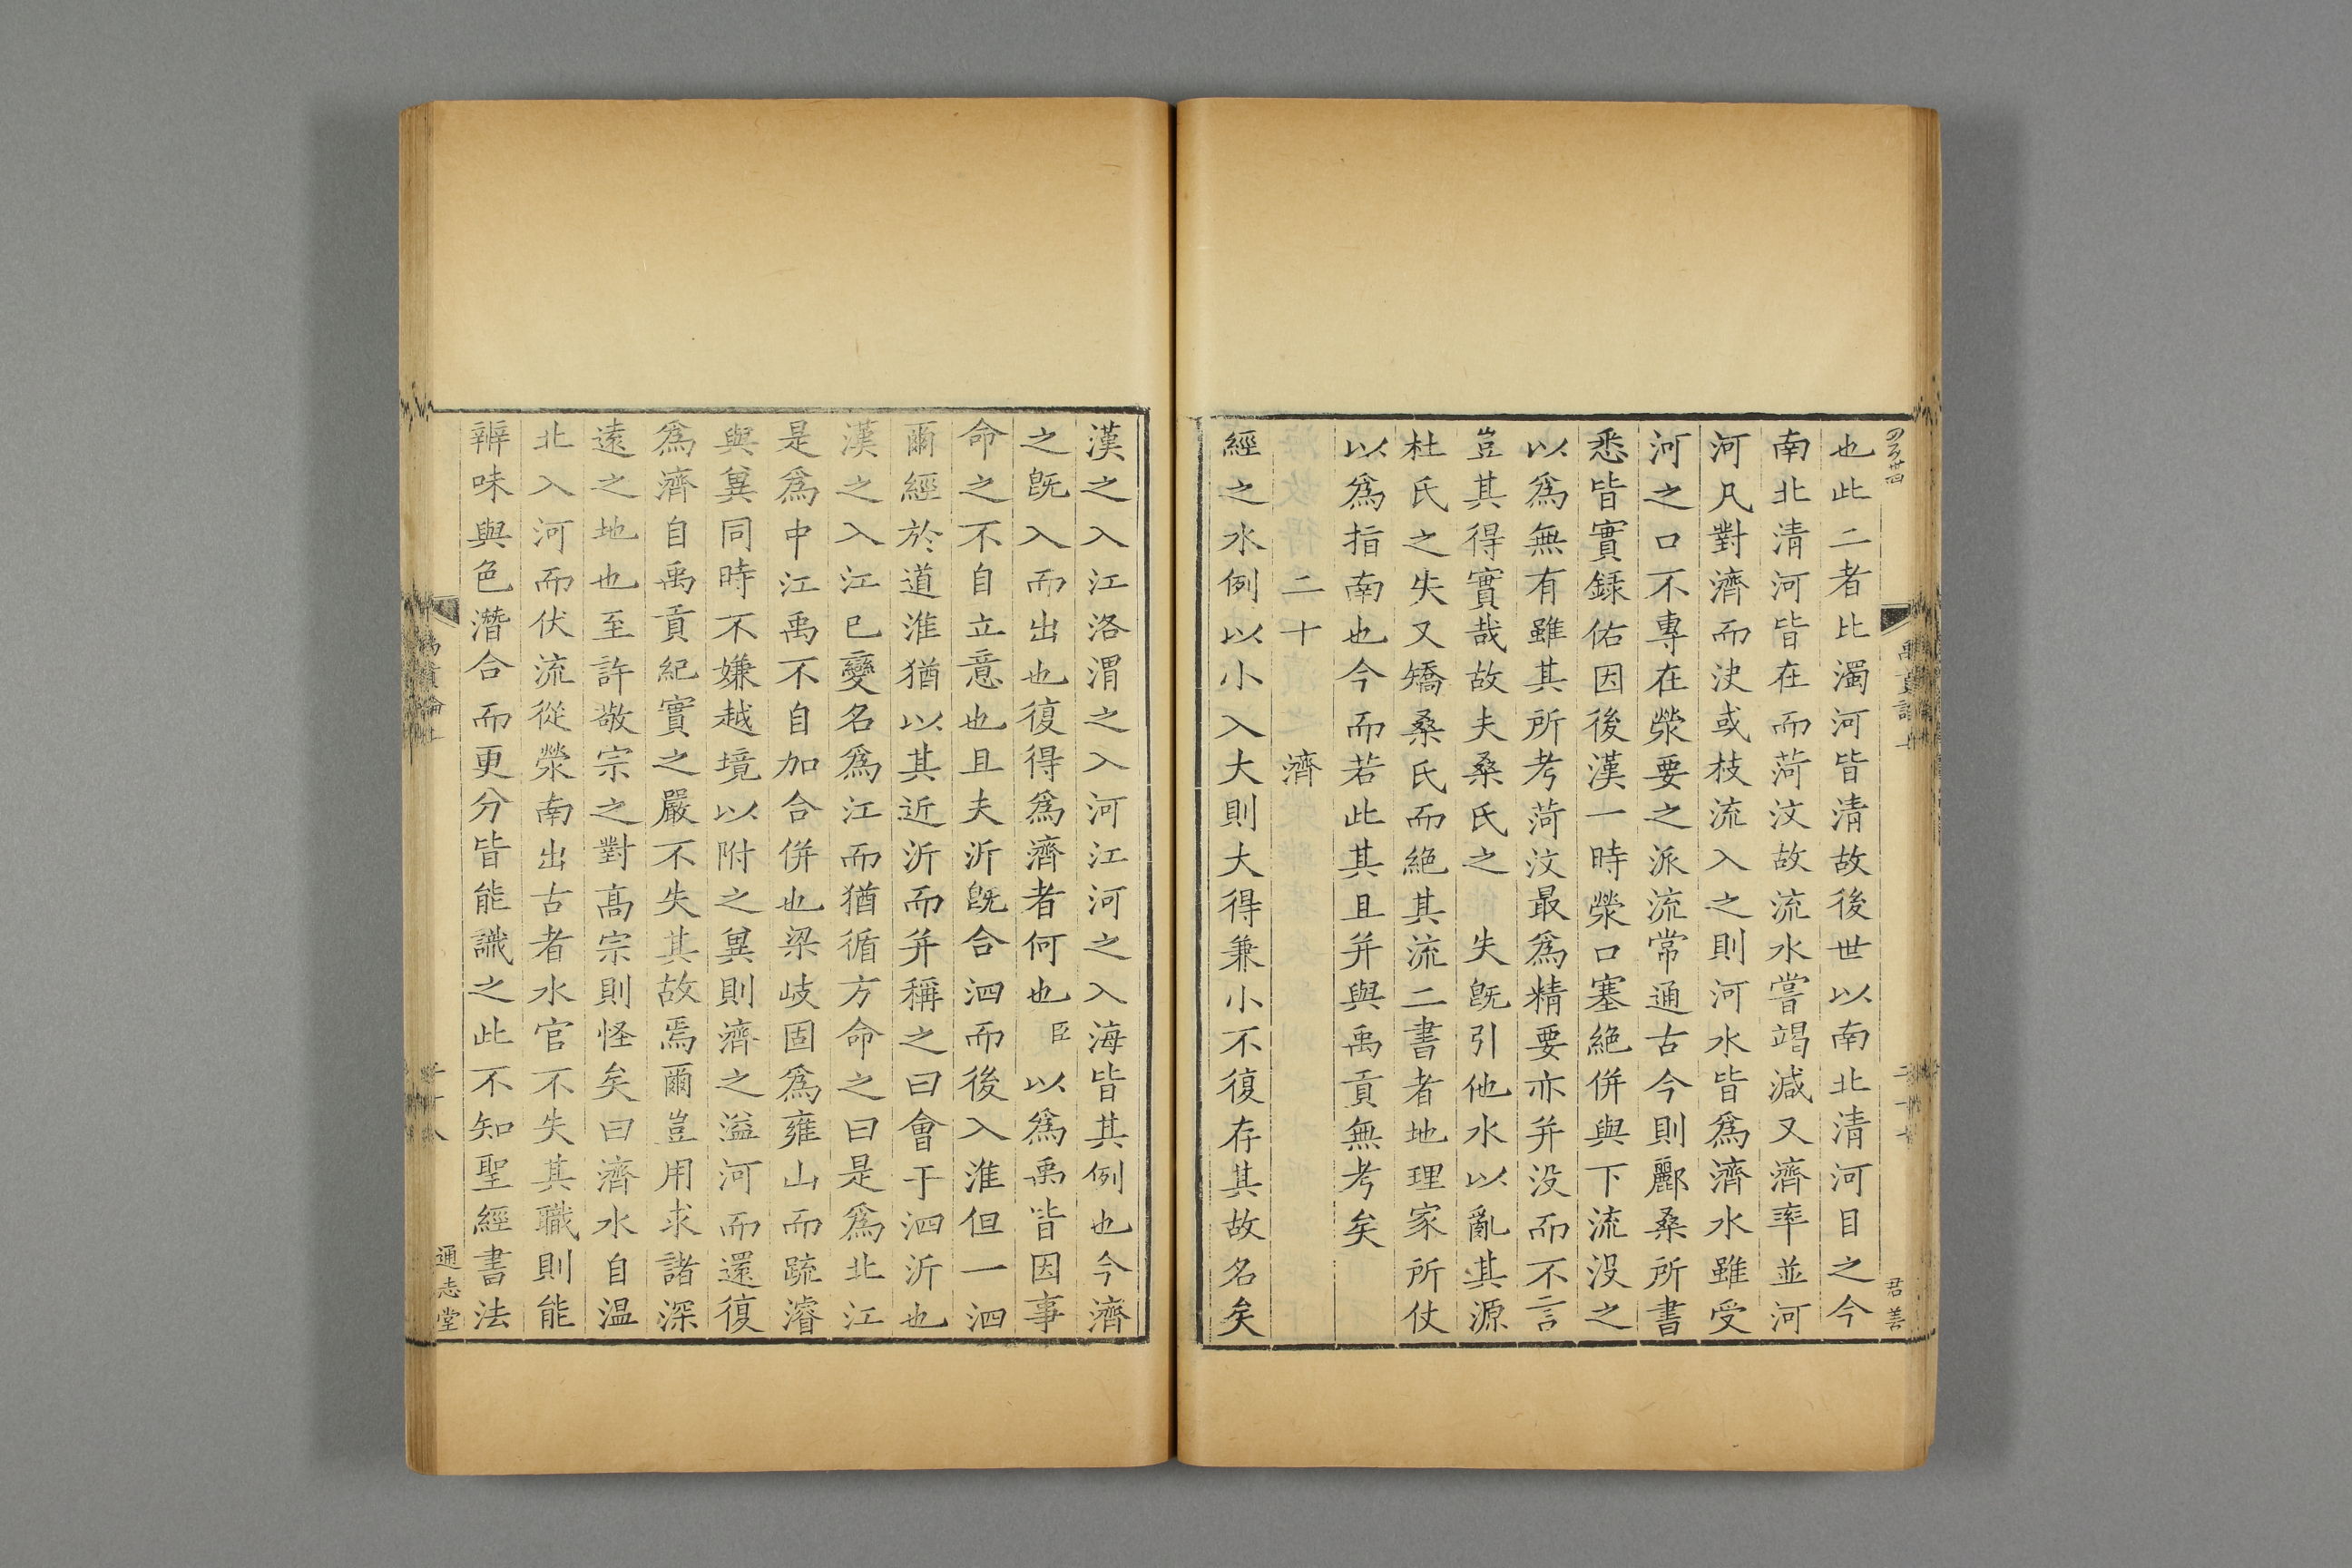 也此二者比濁河皆清故後世以南北清河目之今
南北清河皆在而菏汶故流水嘗竭減又濟率並河
河凡對濟而決或枝流入之則河水皆爲濟水雖受
河之口不專在滎要之派流常通古今則酈桑所書
悉皆實録佑因後漢一時滎口塞絶併與下流没之
以爲無有雖其所考菏汶最爲精要亦并没而不言
豈其得實哉故夫桑氏之失既引他水以亂其源
杜氏之失又矯桑氏而絶其流二書者地理家所仗
以爲指南也今而若此其且并與禹貢無考矣
二十 濟
經之水例以小入大則大得兼小不復存其故名矣
君善
漢之入江洛渭之入河江河之入海皆其例也今濟
之既入而出也復得爲濟者何也臣以爲禹皆因事
命之不自立意也且夫沂既合泗而後入淮但一泗
爾經於道淮猶以其近沂而并稱之曰會于泗沂也
漢之入江已變名爲江而猶循方命之曰是爲北江
是爲中江禹不自加合併也梁岐固爲雍山而䟽濬
與冀同時不嫌越境以附之冀則濟之溢河而還復
爲濟自禹貢紀實之嚴不失其故焉爾豈用求諸深
遠之地也至許敬宗之對高宗則怪矣曰濟水自温
北入河而伏流從滎南出古者水官不失其職則能
辨味與色潛合而更分皆能識之此不知聖經書法
通志堂